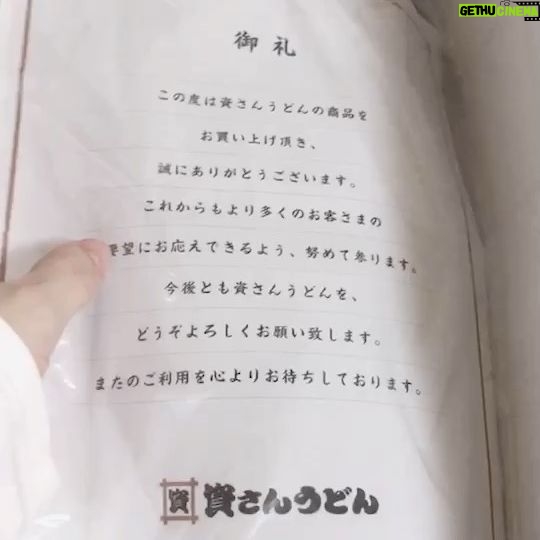 GETHUCINEMA
御礼
この度は資さんうどんの商品を
お買い上げ頂き、
誠にありがとうございます。
これからもより多くのお客さまの
要望にお応えできるよう、努めて参ります。
今後とも資さんうどんを、
どうぞよろしくお願い致します。
またのご利用を心よりお待ちしております。
資 資さんうどん